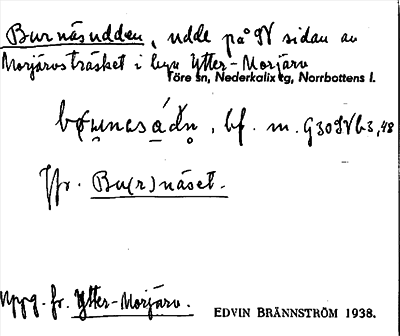 Burnäsudden, udde på N sidan av
Morjärvsträsket i byn Ytter-Morjärv
Töre sn, Nederkalix tg, Norrbottens l.
bf. m.
Jfr. Bu(r)näset.
Uppg. fr. Ytter-Morjärv.
EDVIN BRÄNNSTRÖM 1938.